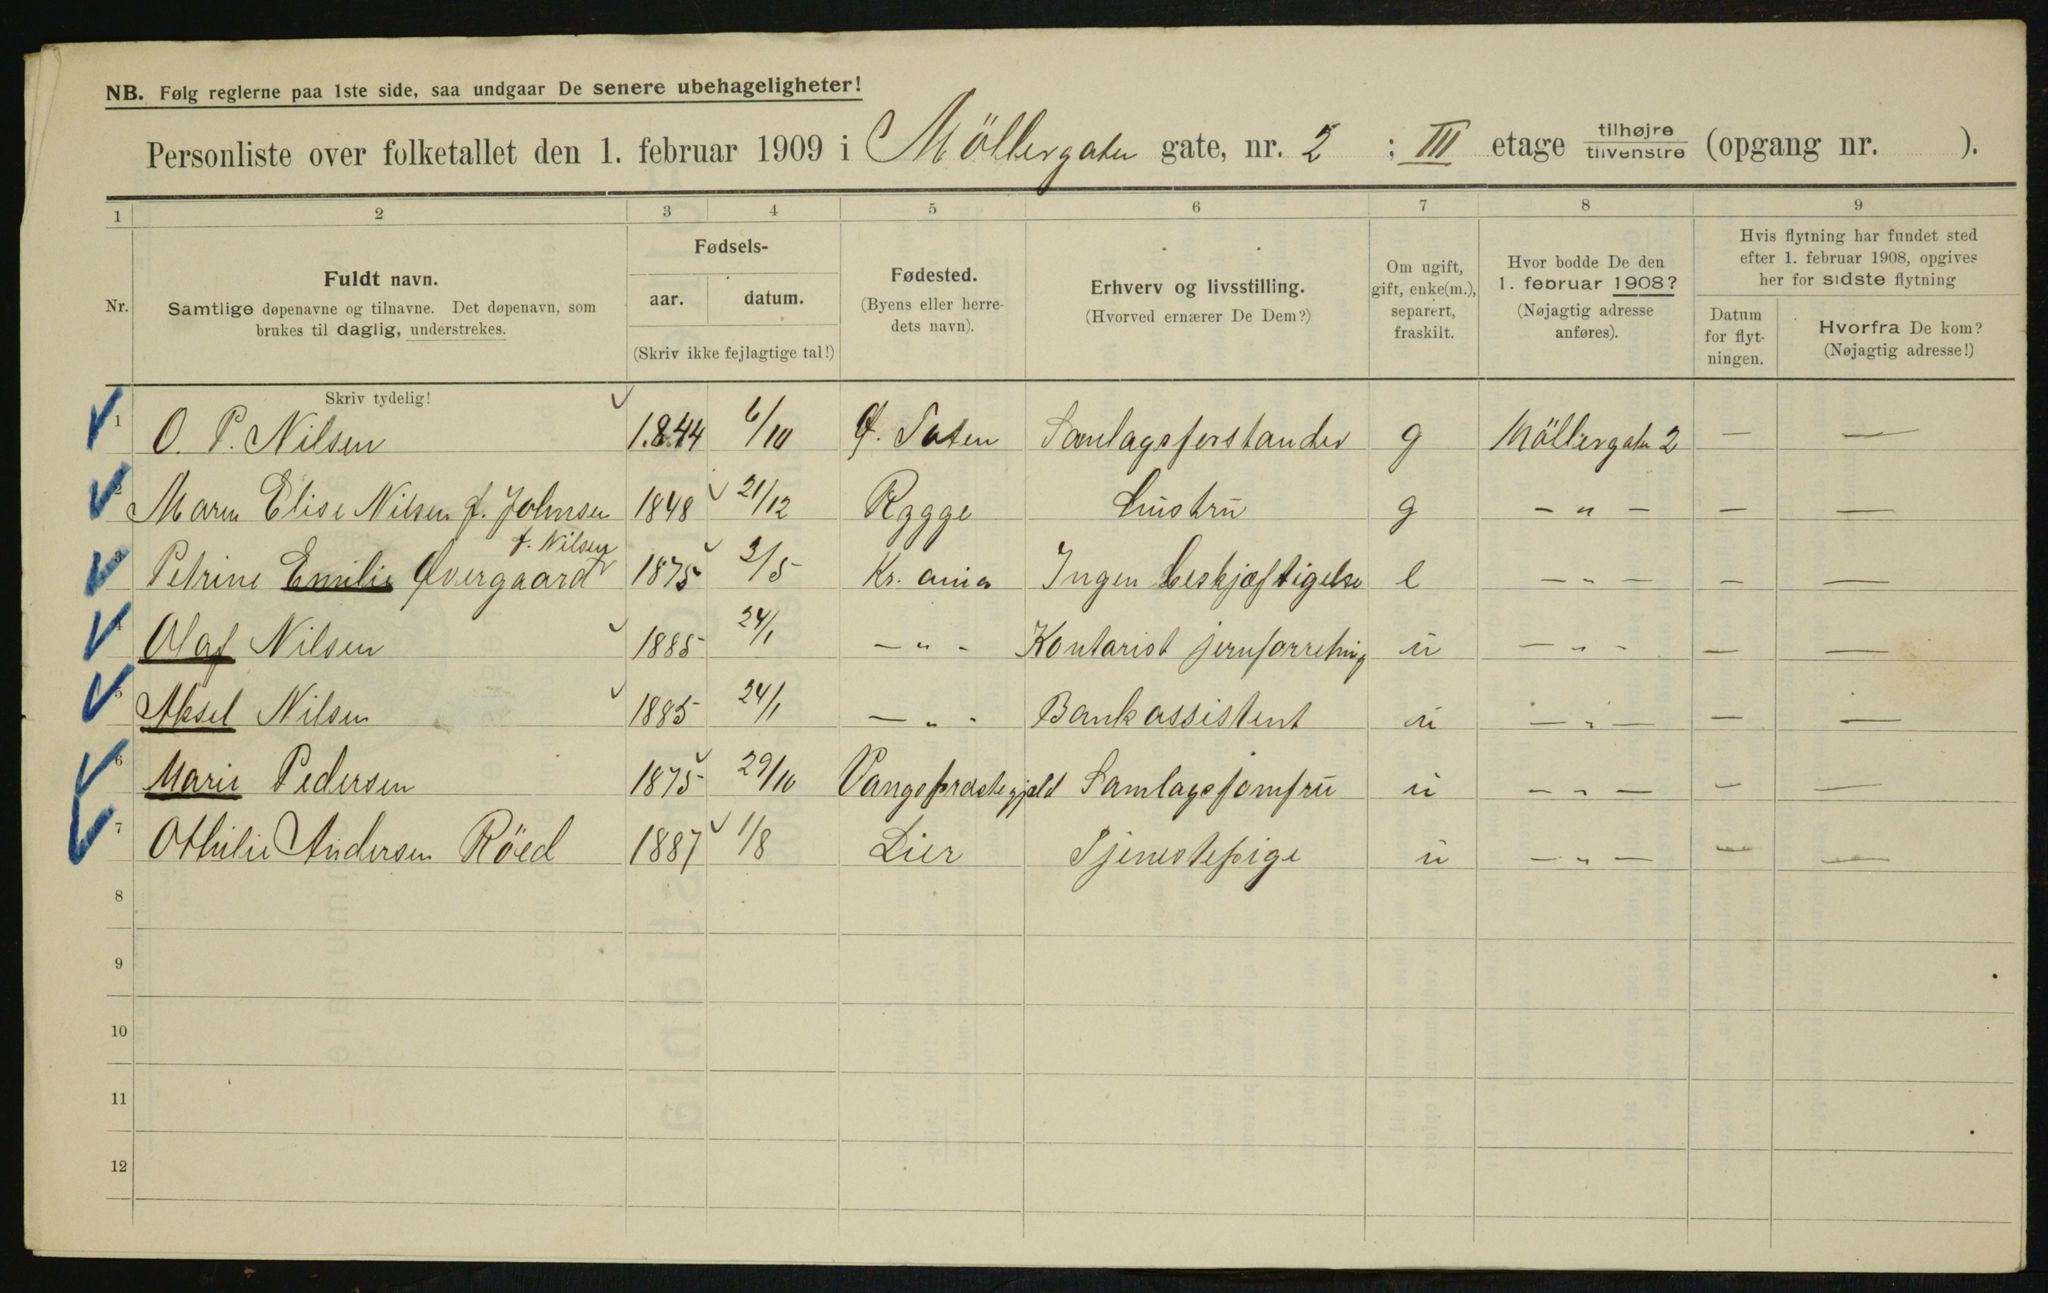 NB. Følg reglerne paa 1ste side, saa undgaar De senere ubehageligheter!
Personliste over folketallet den 1. februar 1909 i Möllergaten gate, nr. 2 ; III etage tilhøjre tilvenstre (opgang nr. ).
1 2 3 4 5 6 7 8 9
Nr.
Fuldt navn.
Samtlige døpenavne og tilnavne. Det døpenavn, som
brukes til daglig, understrekes.
Fødsels-
aar. datum.
(Skriv ikke fejlagtige tal!)
Fødested.
(Byens eller herre-
dets navn).
Erhverv og livsstilling.
(Hvorved ernærer De Dem?)
Om ugift,
gift, enke(m.),
separert,
fraskilt.
Hvor bodde De den
1. februar 1908?
(Nøjagtig adresse
anføres).
Hvis flytning har fundet sted
efter 1. februar 1908, opgives
her for sidste flytning
Datum
for flyt-
ningen.
Hvorfra De kom?
(Nøjagtig adresse!)
Skriv tydelig!
1 O. P. Nilsen 1844 6/10 Ø. Toten Samlagsforstander g Möllergaten 2 — —
2 Maren Elise Nilsen f. Johnsen 1848 21/12 Rygge Hustru g — " — — —
f. Nilsen
3 Petrine Emilie Øvergaard 1875 2/5 Kr.ania Ingen beskjæftigelse e — " — — —
4 Olaf Nilsen 1885 24/1 — " - Kontorist jernforretning u — " - — —
5 Aksel Nilsen 1885 24/1 — " - Bankassistent u — " — — —
6 Marie Pedersen 1875 29/10 Vangspræstegjeld Samlagsjomfru u — " — — —
7 Othilie Andersen Röed 1887 1/8 Lier Tjenestepige u — " — — —
8
9
10
11
12